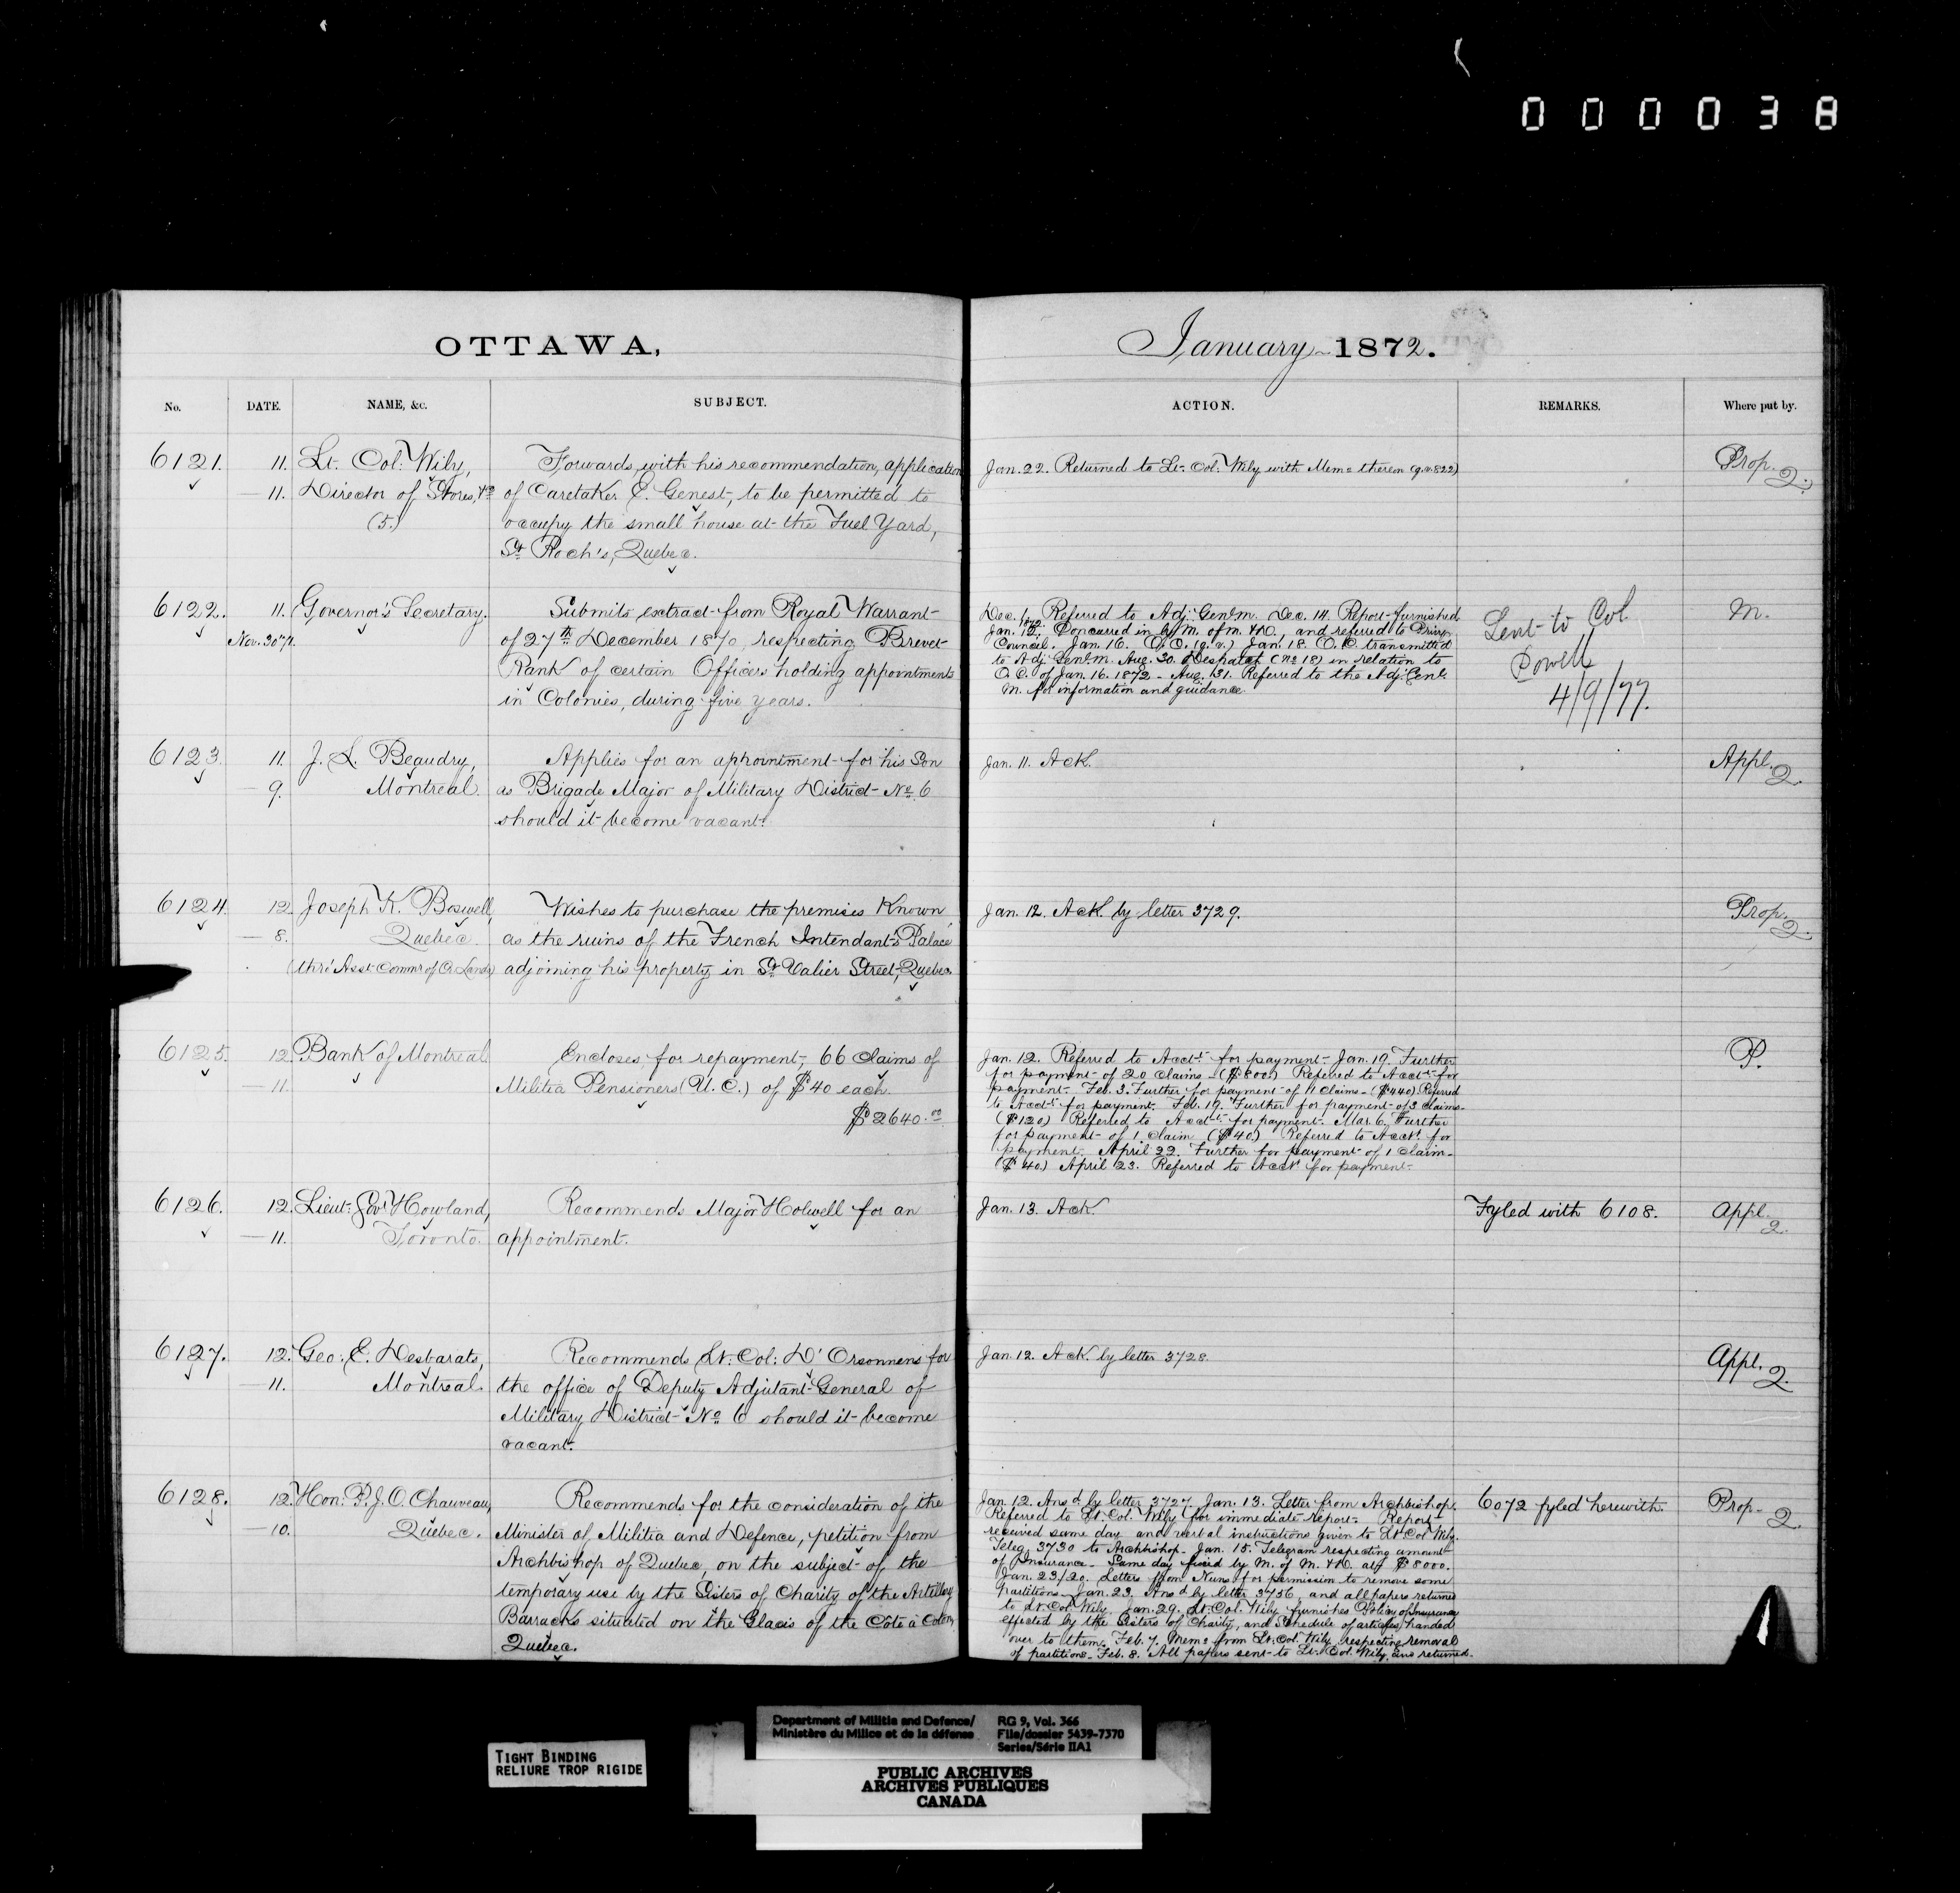 000038
OTTAWA,
January 1872.
No. DATE. NAME, &c. SUBJECT.
ACTION. REMARKS. Where put by.
6121. 11. Lt. Col: Wily, Forwards, with his recommendation, application
— 11. Director of Stores, &c of Caretaker E. Genest, to be permitted to
(5.) occupy the small house at the Fuel Yard,
St Roch's, Quebec.
Jan. 22. Returned to Lt. Col: Wily with Memo thereon (q.v. 822)
Prop. 2.
6122. 11. Governor's Secretary. Submits extract from Royal Warrant
Nov. 30/71. of 27th December 1870, respecting Brevet
Rank of certain Officers holding appointments
in Colonies, during five years.
Dec. 1. Referred to Adj: Genl. m. Dec. 14. Report furnished
Jan. 12. 1872. Concurred in by M. of M. & D., and referred to Privy
Council. Jan. 16. O.C. (q.v.) Jan. 18. O.C. transmitted
to Adj: Genl. m. Aug. 30. Despatch (No 18) in relation to
O.C. of Jan. 16. 1872 - Aug. 31. Referred to the Adj: Genl.
M. for information and guidance.
Sent to Col
Powell
4/9/77.
M.
6123. 11. J. L. Beaudry, Applies for an appointment for his Son
— 9. Montreal. as Brigade Major of Military District No 6
should it become vacant.
Jan. 11. Ack.
Appl. 2.
6124. 12. Joseph K. Boswell, Wishes to purchase the premises Known
— 8. Quebec. as the ruins of the French Intendant's Palace
(thro' Asst Commr of Cr. Lands) adjoining his property in St Valier Street, Quebec.
Jan. 12. Ack. by letter 3729.
Prop. 2.
6125. 12. Bank of Montreal Encloses, for repayment, 66 claims of
— 11. Militia Pensioners (U.C.) of $40 each
$2640.00
Jan. 12. Referred to Acct. for payment - Jan. 19. Further
for payment of 20 claims - ($800) Referred to Acct. for
payment. Feb. 3. Further for payment of 11 claims - ($440) Referred
to Acct. for payment. Feb. 19. Further for payment of 3 claims -
($120) Referred to Acct. for payment. Mar. 6. Further
for payment of 1 claim ($40) Referred to Acct. for
payment. April 22. Further for payment of 1 claim -
($40) April 23. Referred to Acct for payment.
P.
6126. 12. Lieut. Govr Howland, Recommends Major Holwell for an
— 11. Toronto. appointment.
Jan. 13. Ack.
Fyled with 6108.
Appl. 2.
6127. 12. Geo: E. Desbarats, Recommends Lt. Col: D'Orsonnens for
— 11. Montreal. the office of Deputy Adjutant General of
Military District No 6 should it become
vacant.
Jan. 12. Ack. by letter 3728.
Appl. 2.
6128. 12. Hon. P. J. O. Chauveau, Recommends for the consideration of the
— 10. Quebec. Minister of Militia and Defence, petition from
Archbishop of Quebec, on the subject of the
temporary use by the Sisters of Charity of the Artillery
Barracks situated on the Glacis of the Côte à Coton,
Quebec.
Jan. 12. Ansd. by letter 3727. Jan. 13. Letter from Archbishop.
Referred to Lt. Col. Wily for immediate report. Report
received same day and verbal instructions given to Lt. Col. Wily.
Teleg. 3730 to Archbishop. Jan. 15. Telegram respecting amount
of Insurance. Same day fixed by M. of M. & D. at $8000.
Jan. 23/20. Letters from Nuns for permission to remove some
partitions. Jan. 23. Ansd. by letter 3756, and all papers returned
to Lt. Col. Wily. Jan. 29. Lt. Col. Wily furnishes Policy of Insurance
effected by the Sisters of Charity, and Schedule of articles handed
over to them. Feb. 7. Memo from Lt. Col. Wily respecting removal
of partitions. Feb. 8. All papers sent to Lt. Col. Wily and returned.
6072 fyled herewith.
Prop. 2.
TIGHT BINDING
RELIURE TROP RIGIDE
Department of Militia and Defence/ RG 9, Vol. 366
Ministère du Milice et de la défense File/dossier 5439-7370
Series/Série IIA1
PUBLIC ARCHIVES
ARCHIVES PUBLIQUES
CANADA